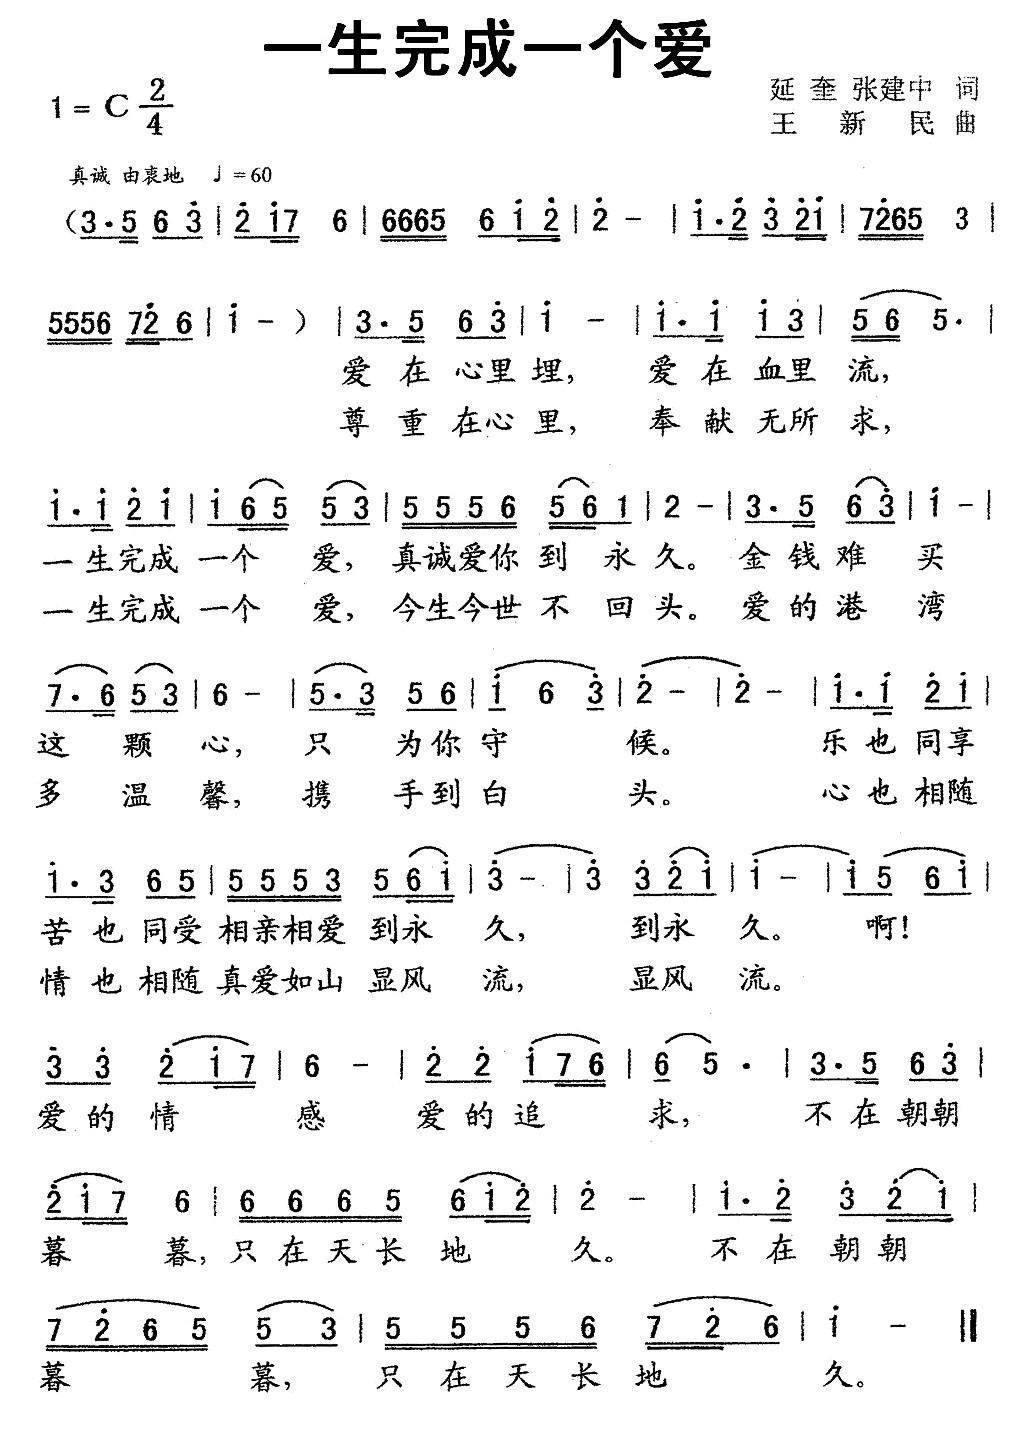 一生完成一个爱
1 = C 2/4
延 奎 张建中 词
王 新 民 曲
真诚 由衷地 ♩ = 60
(3·5 6 3̇ | 2̇ 1̇7 6 | 6665 6 1̇ 2̇ | 2̇ - | 1̇·2̇ 3̇ 2̇1̇ | 72̇65 3 |
5556 72̇ 6 | 1̇ - ) | 3·5 6 3̇ | 1̇ - | 1̇·1̇ 1̇ 3 | 5 6 5· |
爱 在 心里 埋, 爱 在 血里 流,
尊 重 在心 里, 奉 献 无所 求,
1̇·1̇ 2̇ 1̇ | 1̇ 6 5 5 3 | 5 5 5 6 5 6 1 | 2 - | 3·5 6 3̇ | 1̇ - |
一 生完成 一个 爱, 真诚爱你 到 永 久。 金 钱 难 买
一 生完成 一个 爱, 今生今世 不 回 头。 爱 的 港 湾
7·6 5 3 | 6 - | 5·3 5 6 | 1̇ 6 3̇ | 2̇ - | 2̇ - | 1̇·1̇ 2̇ 1̇ |
这 颗 心, 只 为你 守 候。 乐 也 同享
多 温 馨, 携 手到 白 头。 心 也 相随
1̇·3̇ 6 5 | 5 5 5 3 5 6 1̇ | 3̇ - | 3̇ 3̇ 2̇ 1̇ | 1̇ - | 1̇ 5 6 1̇ |
苦 也 同受 相亲相爱 到永 久, 到永 久。 啊!
情 也 相随 真爱如山 显风 流, 显风 流。
3̇ 3̇ 2̇ 1̇ 7 | 6 - | 2̇ 2̇ 1̇ 7 6 | 6 5 · | 3·5 6 3̇ |
爱 的 情 感 爱 的 追 求, 不 在 朝朝
2̇ 1̇ 7 6 | 6 6 6 5 6 1̇ 2̇ | 2̇ - | 1̇·2̇ 3̇ 2̇ 1̇ |
暮 暮, 只 在 天 长 地 久。 不 在 朝 朝
7 2̇ 6 5 5 3 | 5 5 5 6 7 2̇ 6 | 1̇ - ‖
暮 暮, 只 在 天 长 地 久。